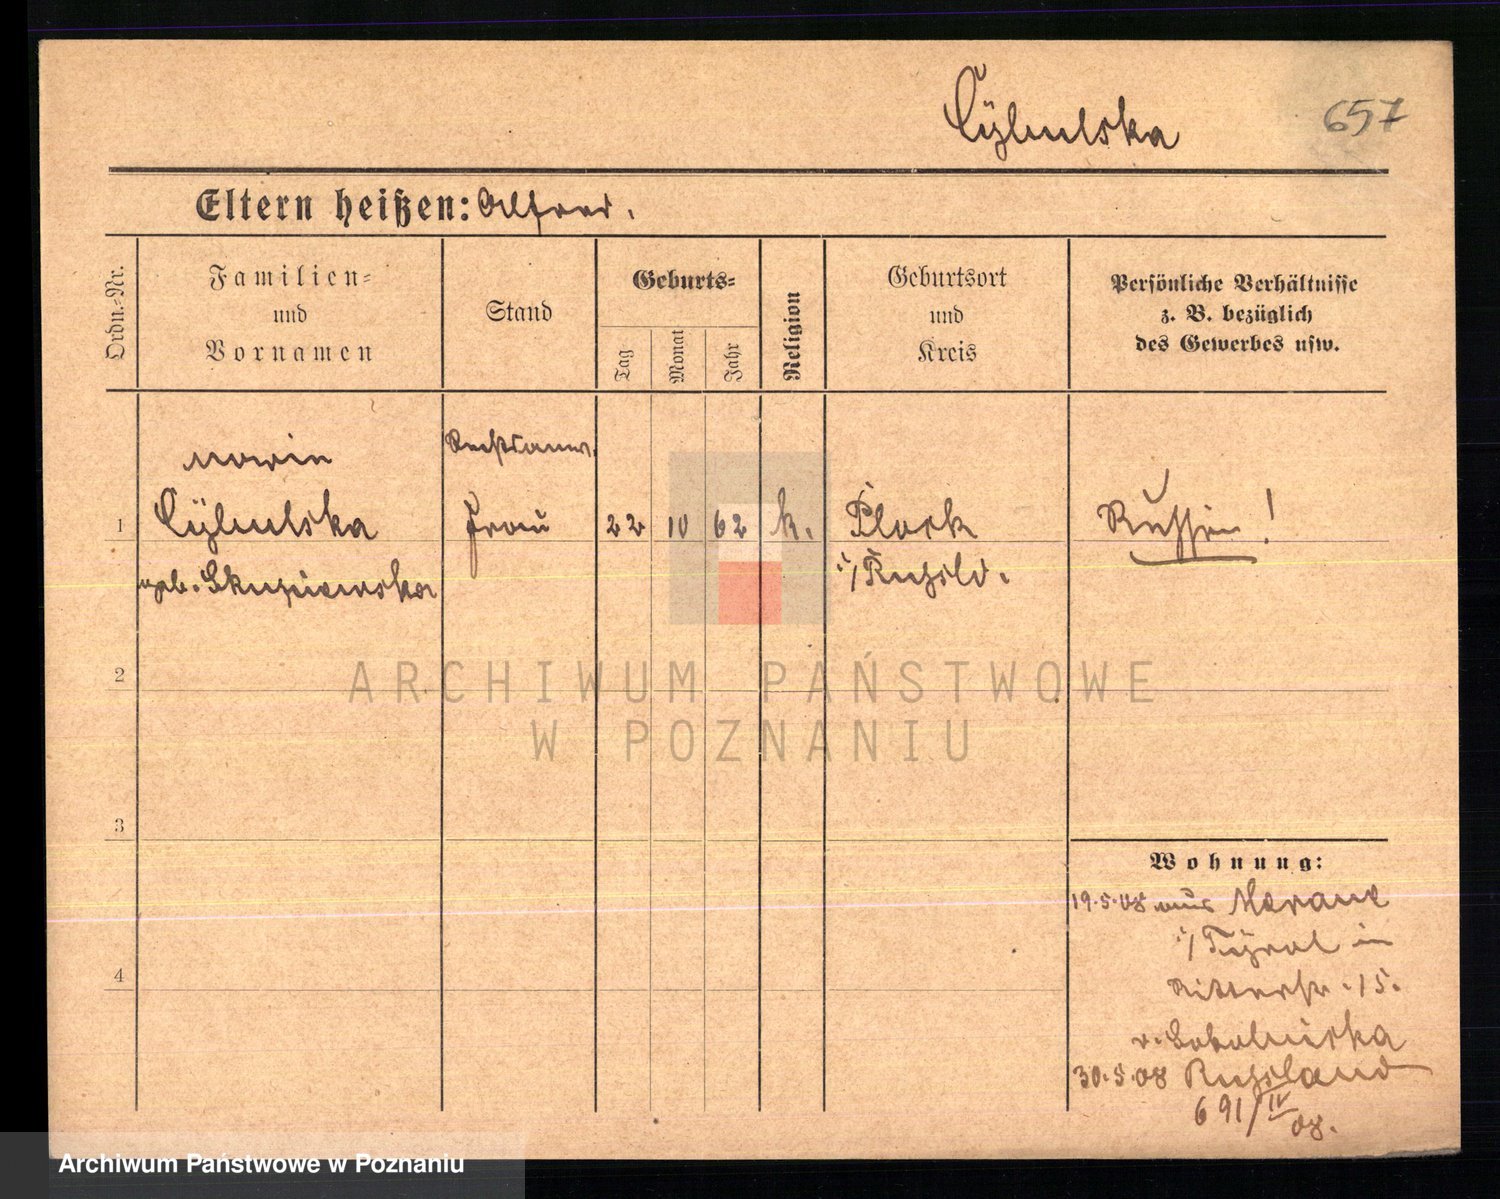 Cybulska 657
Eltern heißen: Alfred.
Ordn.-Nr.
Familien-
und
Vornamen
Stand
Geburts-
Tag
Monat
Jahr
Religion
Geburtsort
und
Kreis
Persönliche Verhältnisse
z. B. bezüglich
des Gewerbes usw.
Maria Rechtsanw.
1 Cybulska Frau 22 10 62 k. Plock Russin!
geb. i/ Rußld.
2
3
4
Wohnung:
19.5.08 aus Meran
i/ Tyrol in
Ritterstr. 15.
v.
30.5.08 Russland
691/IV
08.
ARCHIWUM PAŃSTWOWE
W POZNANIU
Archiwum Państwowe w Poznaniu